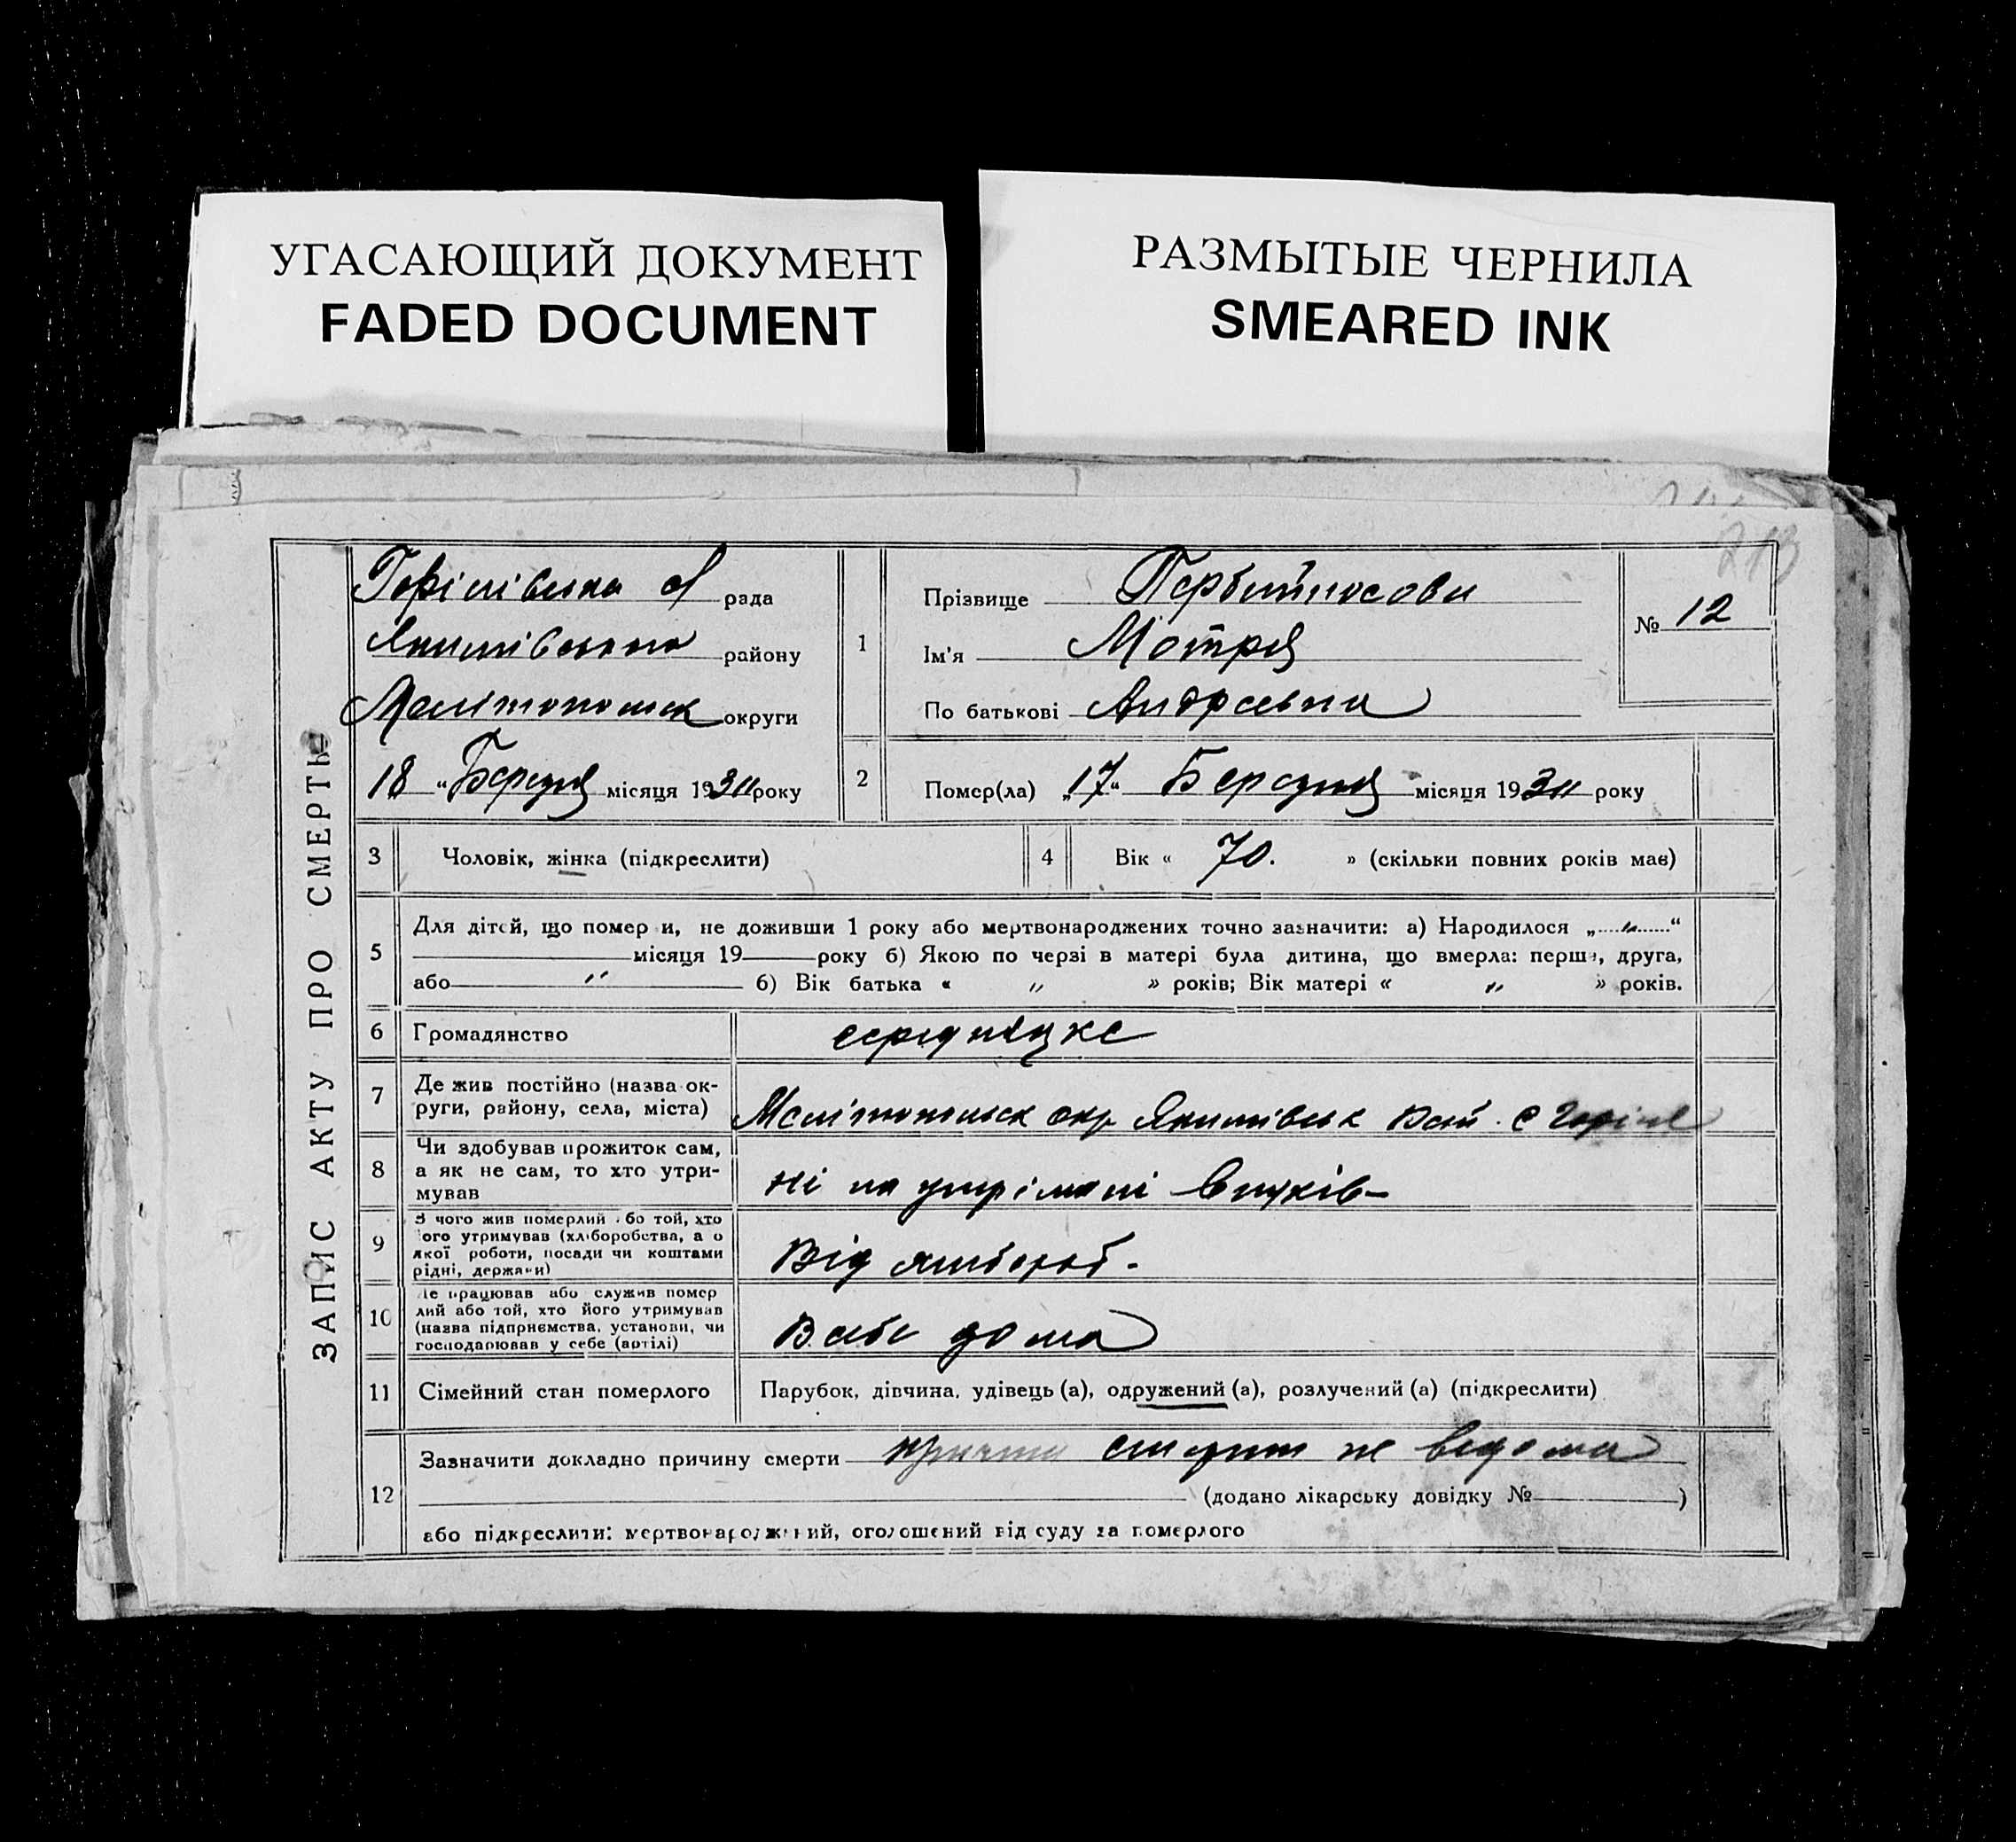 УГАСАЮЩИЙ ДОКУМЕНТ
FADED DOCUMENT
РАЗМЫТЫЕ ЧЕРНИЛА
SMEARED INK
213
ЗАПИС АКТУ ПРО СМЕРТЬ
рада
району
округи
18 " Березня місяця 1930 року
1
Прізвище
Ім'я Мотря
По батькові Андреевна
№ 12
2 Помер(ла) „17" Березня місяця 1930 року
3 Чоловік, жінка (підкреслити)
4 Вік « 70. » (скільки повних років мав)
5
Для дітей, що помер и, не доживши 1 року або мертвонароджених точно зазначити: а) Народилося „ " “
місяця 19 року б) Якою по черзі в матері була дитина, що вмерла: перша, друга,
або " б) Вік батька « " » років; Вік матері « " » років.
6 Громадянство середняцке
7
Де жив постійно (назва ок-
руги, району, села, міста)
Мелітопольск окр Якимівськ с
8
Чи здобував прожиток сам,
а як не сам, то хто утри-
мував
Ні на утрімані внуків
9
З чого жив померлий бо той, хто
ого утримував (хліборобства, а о
якої роботи, посади чи коштами
рідні, держави)
Від
10
Де працював або служив помер
лий або той, хто його утримував
(назва підприємства, установи, чи
господарював у себе (артілі)
В себе дома
11 Сімейний стан померлого Парубок, дівчина, удівець (а), одружений (а), розлучений (а) (підкреслити)
12
Зазначити докладно причину смерти не ведома
(додано лікарську довідку № )
або підкреслити: мертвонароджений, оголошений від суду за померлого